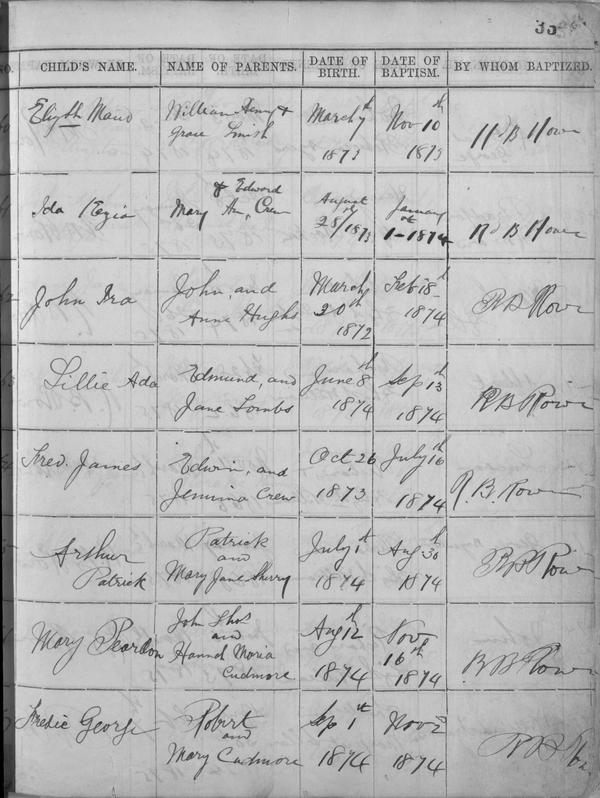 35
NO. CHILD'S NAME. NAME OF PARENTS. DATE OF BIRTH. DATE OF BAPTISM. BY WHOM BAPTIZED.
Elizth Maud
William Henry &
Grace Smish
March 7th
1873
Nov 10th
1873
Rd B Rowe
Ida Kezia
& Edward
Mary An, Crew
August
28th/1873
January
1st - 1874
Rd B Rowe
John Ira
John, and
Anne Hughs
March
20th
1872
Feb 18th
1874
R B Rowe
Lillie Ada
Edmund, and
Jane Tombs
June 8th
1874
Sep 13th
1874
R B Rowe
Fred. James
Edwin, and
Jemima Crew
Oct. 26
1873
July 16th
1874
R. B. Rowe
Arthur
Patrick
Patrick
and
Mary Jane Sherry
July 1st
1874
Aug 30th
1874
R B Rowe
Mary Pearldon
John Thos
and
Hannah Moria
Cudmore
Aug 12th
1874
Nov
16th
1874
R B Rowe
Fredic George
Robert
and
Mary Cudmore
Sep 1st
1874
Nov 2
1874
R B